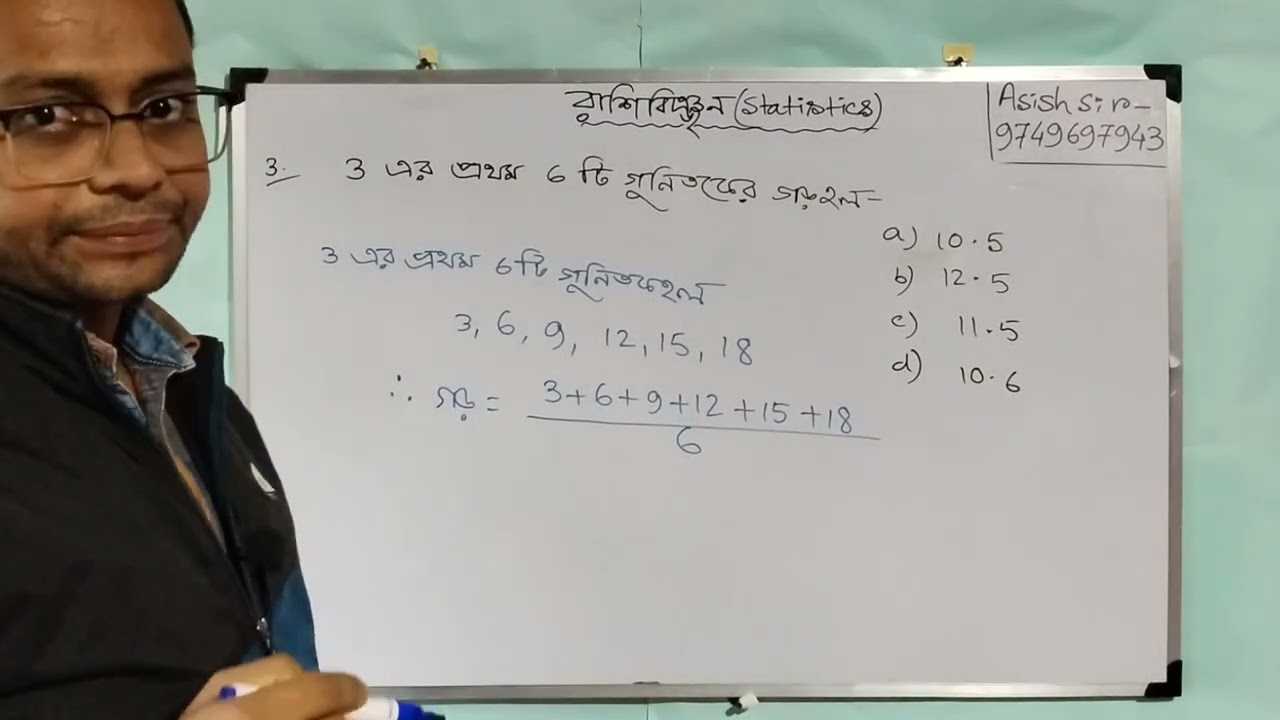 রাশিবিজ্ঞান (Statistics)
Asish Sir-
9749697943
3. 3 এর প্রথম 6 টি গুনিতকের গড় হল-
a) 10.5
b) 12.5
c) 11.5
d) 10.6
3 এর প্রথম 6টি গুনিতক হল
3, 6, 9, 12, 15, 18
∴ গড় = 3+6+9+12+15+18
6